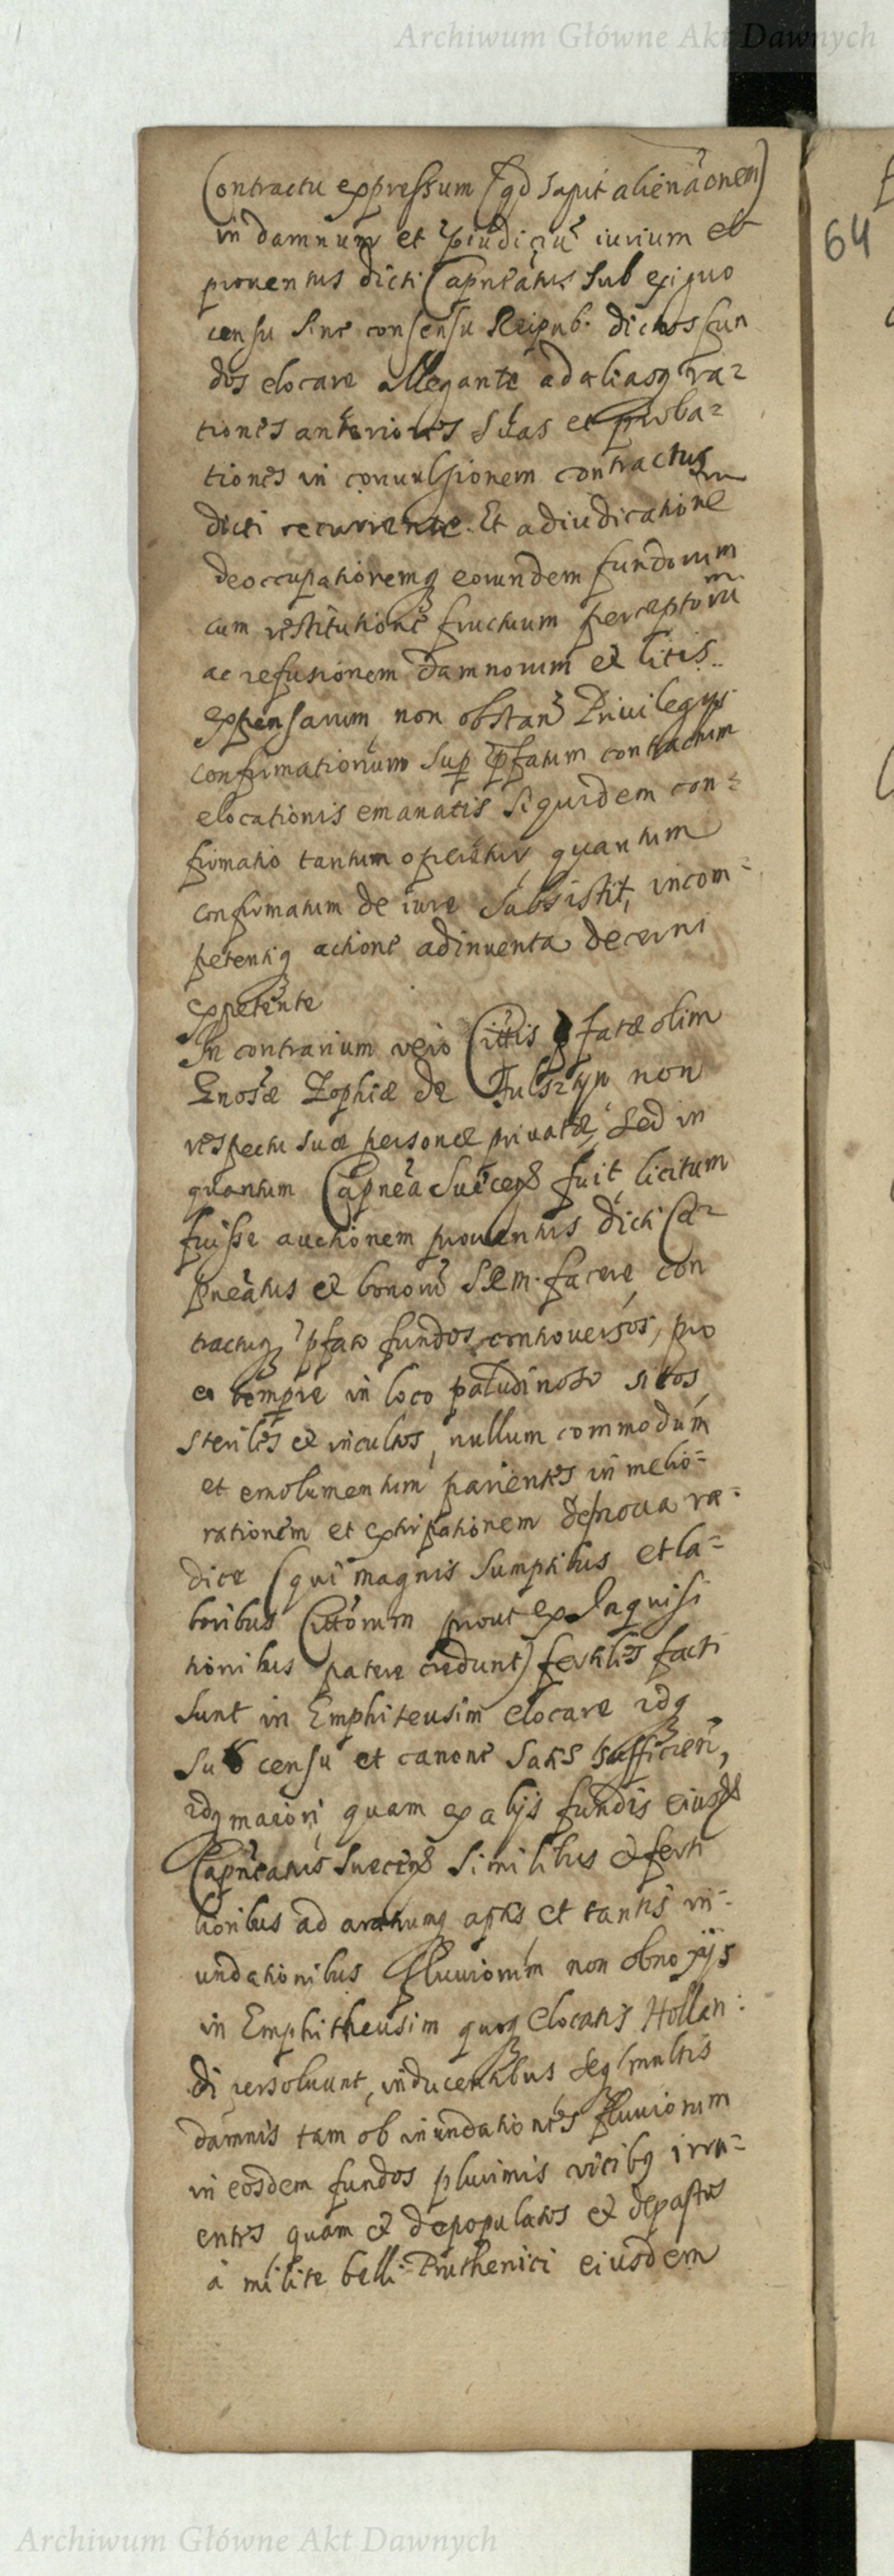 Archiwum Główne Akt Dawnych
Contractu expressum (qd sapit alienãonem)
in damnum et p̃iudiciũ iurium et
prouentus dicti Capneãtus sub exiguo
censu sine consensu Reipub. dictos fun
dos elocare allegante ad aliasq ra-
tiones anteriores suas et proba-
tiones in conuulsionem contractus
dicti recurrente. Et adiudicationem
deoccupationemq eorundem fundorum
cum restitutione fructuum perceptorum
ac refusionem damnorum et litis
expensarum, non obstañ Priuilegijs
confirmationum sup p̃fatum contractum
elocationis emanatis siquidem con-
firmatio tantum operetur, quantum
confirmatum de iure subsistit, incom-
petentiq actione adinuenta decerni
expetente
In contrarium vero Cittis p̃fatæ olim
Gnosæ Zophiæ de Fulsztyn non
respectu suæ personæ priuatæ, sed in
quantum Capnea Sueceñ fuit licitum
fuisse auctionem prouentus dicti Ca-
pneãtus et bonorũ S. R. M. facere, con
tractuq p̃fato fundos controuersos, pro
eo tempre in loco paludinoso sitos
steriles et incultos, nullum commodum
et emolumentum parientes in melio-
rationem et extirpationem de noua ra-
dice (qui magnis sumptibus et la-
boribus Cittorum prout ex Inquisi
tionibus patere credunt) fertiles facti
sunt in Emphiteusim elocare idq
sub censu et canone satis sufficieñ,
idq maiori quam ex alijs fundis eiusd
Capneatus Sueceñ similibus et ferti
lioribus ad aratrumq aptis et tantis in-
undationibus fluuiorum non obnoxijs
in Emphitheusim quoq elocatis Hollan:
di persoluunt, inducentibus seq multis
damnis tam ob inundationes fluuiorum
in eosdem fundos plurimis vicibq irru-
entes quam et depopulatos et depastos
à milite belli Pruthenici eiusdem
64
Archiwum Główne Akt Dawnych